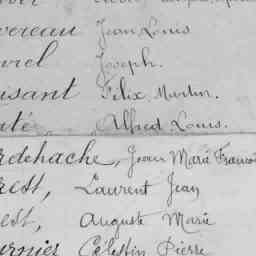 vereau Jean Louis
vrel Joseph.
uisant Félix Martin.
até, Alfred Louis.
rdehache, Jean Marie Francoi
rest, Laurent Jean
est, Auguste Marie
urnier Célestin Pierre